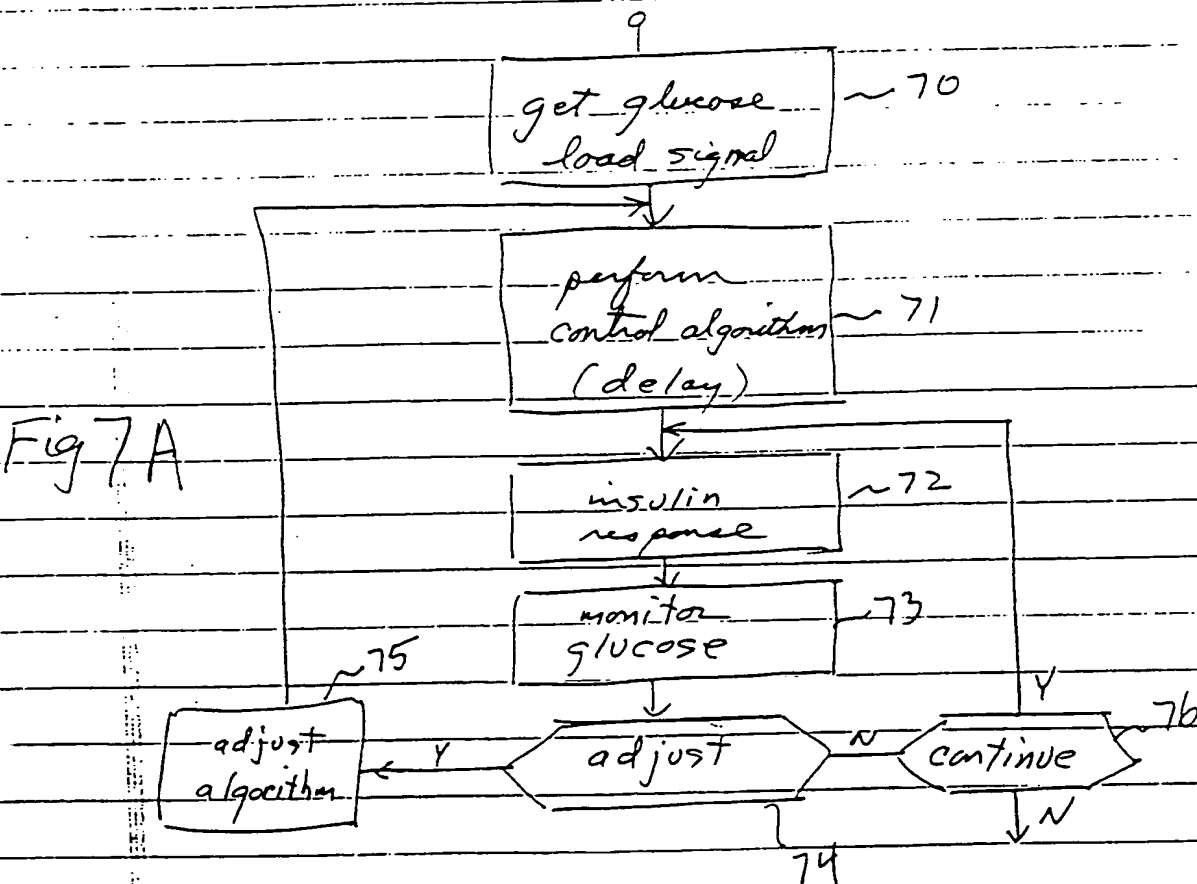 9
get glucose
load signal
70
perform
control algorithm
(delay)
71
Fig 7A
insulin
response
72
monitor
glucose
73
75
adjust
algorithm
Y
adjust
N
continue
Y
76
N
74